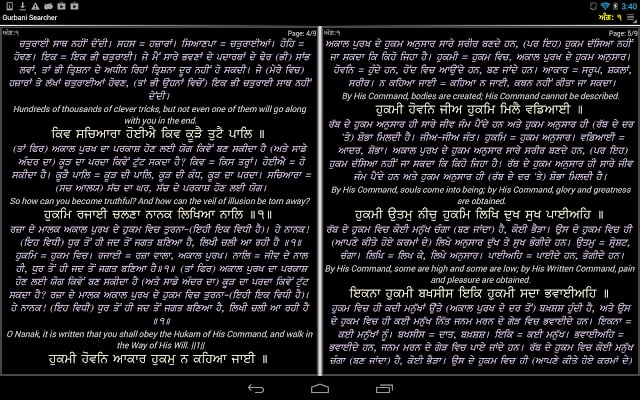 3:40
Gurbani Searcher
ਅੰਗ: ੧
ਅੰਗ:੧ Page: 4/9
ਚਤੁਰਾਈ ਸਾਥ ਨਹੀਂ ਦੇਂਦੀ। ਸਹਸ = ਹਜ਼ਾਰਾਂ। ਸਿਆਣਪਾ = ਚਤੁਰਾਈਆਂ। ਹੋਹਿ =
ਹੋਵਣ। ਇਕ = ਇਕ ਭੀ ਚਤੁਰਾਈ। ਜੇ ਮੈਂ ਸਾਰੇ ਭਵਣਾਂ ਦੇ ਪਦਾਰਥਾਂ ਦੇ ਢੇਰ (ਭੀ) ਸਾਂਭ
ਲਵਾਂ, ਤਾਂ ਭੀ ਤ੍ਰਿਸ਼ਨਾ ਦੇ ਅਧੀਨ ਰਿਹਾਂ ਤ੍ਰਿਸ਼ਨਾ ਦੂਰ ਨਹੀਂ ਹੋ ਸਕਦੀ। ਜੇ (ਮੇਰੇ ਵਿਚ)
ਹਜ਼ਾਰਾਂ ਤੇ ਲੱਖਾਂ ਚਤੁਰਾਈਆਂ ਹੋਵਣ, (ਤਾਂ ਭੀ ਉਹਨਾਂ ਵਿਚੋਂ) ਇਕ ਭੀ ਚਤੁਰਾਈ ਸਾਥ ਨਹੀਂ
ਦੇਂਦੀ।
Hundreds of thousands of clever tricks, but not even one of them will go along
with you in the end.
ਕਿਵ ਸਚਿਆਰਾ ਹੋਈਐ ਕਿਵ ਕੂੜੈ ਤੁਟੈ ਪਾਲਿ ॥
(ਤਾਂ ਫਿਰ) ਅਕਾਲ ਪੁਰਖ ਦਾ ਪਰਕਾਸ਼ ਹੋਣ ਲਈ ਯੋਗ ਕਿਵੇਂ ਬਣ ਸਕੀਦਾ ਹੈ (ਅਤੇ ਸਾਡੇ
ਅੰਦਰ ਦਾ) ਕੂੜ ਦਾ ਪਰਦਾ ਕਿਵੇਂ ਟੁੱਟ ਸਕਦਾ ਹੈ? ਕਿਵ = ਕਿਸ ਤਰ੍ਹਾਂ। ਹੋਈਐ = ਹੋ
ਸਕੀਦਾ ਹੈ। ਕੂੜੈ ਪਾਲਿ = ਕੂੜ ਦੀ ਪਾਲਿ, ਕੂੜ ਦੀ ਕੰਧ, ਕੂੜ ਦਾ ਪਰਦਾ। ਸਚਿਆਰਾ =
(ਸਚ ਆਲਯ) ਸੱਚ ਦਾ ਘਰ, ਸੱਚ ਦੇ ਪਰਕਾਸ਼ ਹੋਣ ਲਈ ਯੋਗ।
So how can you become truthful? And how can the veil of illusion be torn away?
ਹੁਕਮਿ ਰਜਾਈ ਚਲਣਾ ਨਾਨਕ ਲਿਖਿਆ ਨਾਲਿ ॥੧॥
ਰਜ਼ਾ ਦੇ ਮਾਲਕ ਅਕਾਲ ਪੁਰਖ ਦੇ ਹੁਕਮ ਵਿਚ ਤੁਰਨਾ-(ਇਹੀ ਇਕ ਵਿਧੀ ਹੈ)। ਹੇ ਨਾਨਕ!
(ਇਹ ਵਿਧੀ) ਧੁਰ ਤੋਂ ਹੀ ਜਦ ਤੋਂ ਜਗਤ ਬਣਿਆ ਹੈ, ਲਿਖੀ ਚਲੀ ਆ ਰਹੀ ਹੈ ॥੧॥
ਹੁਕਮਿ = ਹੁਕਮ ਵਿਚ। ਰਜਾਈ = ਰਜ਼ਾ ਵਾਲਾ, ਅਕਾਲ ਪੁਰਖ। ਨਾਲਿ = ਜੀਵ ਦੇ ਨਾਲ
ਹੀ, ਧੁਰ ਤੋਂ ਹੀ ਜਦ ਤੋਂ ਜਗਤ ਬਣਿਆ ਹੈ॥੧॥ (ਤਾਂ ਫਿਰ) ਅਕਾਲ ਪੁਰਖ ਦਾ ਪਰਕਾਸ਼
ਹੋਣ ਲਈ ਯੋਗ ਕਿਵੇਂ ਬਣ ਸਕੀਦਾ ਹੈ (ਅਤੇ ਸਾਡੇ ਅੰਦਰ ਦਾ) ਕੂੜ ਦਾ ਪਰਦਾ ਕਿਵੇਂ ਟੁੱਟ
ਸਕਦਾ ਹੈ? ਰਜ਼ਾ ਦੇ ਮਾਲਕ ਅਕਾਲ ਪੁਰਖ ਦੇ ਹੁਕਮ ਵਿਚ ਤੁਰਨਾ-(ਇਹੀ ਇਕ ਵਿਧੀ ਹੈ)।
ਹੇ ਨਾਨਕ! (ਇਹ ਵਿਧੀ) ਧੁਰ ਤੋਂ ਹੀ ਜਦ ਤੋਂ ਜਗਤ ਬਣਿਆ ਹੈ, ਲਿਖੀ ਚਲੀ ਆ ਰਹੀ ਹੈ
॥੧॥
O Nanak, it is written that you shall obey the Hukam of His Command, and walk in
the Way of His Will. ||1||
ਹੁਕਮੀ ਹੋਵਨਿ ਆਕਾਰ ਹੁਕਮੁ ਨ ਕਹਿਆ ਜਾਈ ॥
ਅੰਗ:੧ Page: 5/9
ਅਕਾਲ ਪੁਰਖ ਦੇ ਹੁਕਮ ਅਨੁਸਾਰ ਸਾਰੇ ਸਰੀਰ ਬਣਦੇ ਹਨ, (ਪਰ ਇਹ) ਹੁਕਮ ਦੱਸਿਆ ਨਹੀਂ
ਜਾ ਸਕਦਾ ਕਿ ਕਿਹੋ ਜਿਹਾ ਹੈ। ਹੁਕਮੀ = ਹੁਕਮ ਵਿਚ, ਅਕਾਲ ਪੁਰਖ ਦੇ ਹੁਕਮ ਅਨੁਸਾਰ।
ਹੋਵਨਿ = ਹੁੰਦੇ ਹਨ, ਹੋਂਦ ਵਿਚ ਆਉਂਦੇ ਹਨ, ਬਣ ਜਾਂਦੇ ਹਨ। ਆਕਾਰ = ਸਰੂਪ, ਸ਼ਕਲਾਂ,
ਸਰੀਰ। ਨ ਕਹਿਆ ਜਾਈ = ਕਹਿਆ ਨ ਜਾਈ, ਕਥਨ ਨਹੀਂ ਕੀਤਾ ਜਾ ਸਕਦਾ।
By His Command, bodies are created; His Command cannot be described.
ਹੁਕਮੀ ਹੋਵਨਿ ਜੀਅ ਹੁਕਮਿ ਮਿਲੈ ਵਡਿਆਈ ॥
ਰੱਬ ਦੇ ਹੁਕਮ ਅਨੁਸਾਰ ਹੀ ਸਾਰੇ ਜੀਵ ਜੰਮ ਪੈਂਦੇ ਹਨ ਅਤੇ ਹੁਕਮ ਅਨੁਸਾਰ ਹੀ (ਰੱਬ ਦੇ ਦਰ
'ਤੇ) ਸ਼ੋਭਾ ਮਿਲਦੀ ਹੈ। ਜੀਅ-ਜੀਅ ਜੰਤ। ਹੁਕਮਿ = ਹੁਕਮ ਅਨੁਸਾਰ। ਵਡਿਆਈ =
ਆਦਰ, ਸ਼ੋਭਾ। ਅਕਾਲ ਪੁਰਖ ਦੇ ਹੁਕਮ ਅਨੁਸਾਰ ਸਾਰੇ ਸਰੀਰ ਬਣਦੇ ਹਨ, (ਪਰ ਇਹ)
ਹੁਕਮ ਦੱਸਿਆ ਨਹੀਂ ਜਾ ਸਕਦਾ ਕਿ ਕਿਹੋ ਜਿਹਾ ਹੈ। ਰੱਬ ਦੇ ਹੁਕਮ ਅਨੁਸਾਰ ਹੀ ਸਾਰੇ ਜੀਵ
ਜੰਮ ਪੈਂਦੇ ਹਨ ਅਤੇ ਹੁਕਮ ਅਨੁਸਾਰ ਹੀ (ਰੱਬ ਦੇ ਦਰ 'ਤੇ) ਸ਼ੋਭਾ ਮਿਲਦੀ ਹੈ।
By His Command, souls come into being; by His Command, glory and greatness
are obtained.
ਹੁਕਮੀ ਉਤਮੁ ਨੀਚੁ ਹੁਕਮਿ ਲਿਖਿ ਦੁਖ ਸੁਖ ਪਾਈਅਹਿ ॥
ਰੱਬ ਦੇ ਹੁਕਮ ਵਿਚ ਕੋਈ ਮਨੁੱਖ ਚੰਗਾ (ਬਣ ਜਾਂਦਾ) ਹੈ, ਕੋਈ ਭੈੜਾ। ਉਸ ਦੇ ਹੁਕਮ ਵਿਚ ਹੀ
(ਆਪਣੇ ਕੀਤੇ ਹੋਏ ਕਰਮਾਂ ਦੇ) ਲਿਖੇ ਅਨੁਸਾਰ ਦੁੱਖ ਤੇ ਸੁਖ ਭੋਗੀਦੇ ਹਨ। ਉਤਮੁ = ਸ੍ਰੇਸ਼ਟ,
ਚੰਗਾ। ਲਿਖਿ = ਲਿਖ ਕੇ, ਲਿਖੇ ਅਨੁਸਾਰ। ਪਾਈਅਹਿ = ਪਾਈਦੇ ਹਨ, ਭੋਗੀਦੇ ਹਨ।
By His Command, some are high and some are low; by His Written Command, pain
and pleasure are obtained.
ਇਕਨਾ ਹੁਕਮੀ ਬਖਸੀਸ ਇਕਿ ਹੁਕਮੀ ਸਦਾ ਭਵਾਈਅਹਿ ॥
ਹੁਕਮ ਵਿਚ ਹੀ ਕਦੀ ਮਨੁੱਖਾਂ ਉੱਤੇ (ਅਕਾਲ ਪੁਰਖ ਦੇ ਦਰ ਤੋਂ) ਬਖ਼ਸ਼ਸ਼ ਹੁੰਦੀ ਹੈ, ਅਤੇ ਉਸ
ਦੇ ਹੁਕਮ ਵਿਚ ਹੀ ਕਈ ਮਨੁੱਖ ਨਿੱਤ ਜਨਮ ਮਰਨ ਦੇ ਗੇੜ ਵਿਚ ਭਵਾਈਦੇ ਹਨ। ਇਕਨਾ =
ਕਈ ਮਨੁੱਖਾਂ ਨੂੰ। ਬਖਸੀਸ = ਦਾਤ, ਬਖ਼ਸ਼ਸ਼। ਇਕਿ = ਕਈ ਮਨੁੱਖ। ਭਵਾਈਅਹਿ =
ਭਵਾਈਦੇ ਹਨ, ਜਨਮ ਮਰਨ ਦੇ ਗੇੜ ਵਿਚ ਪਾਏ ਜਾਂਦੇ ਹਨ। ਰੱਬ ਦੇ ਹੁਕਮ ਵਿਚ ਕੋਈ ਮਨੁੱਖ
ਚੰਗਾ (ਬਣ ਜਾਂਦਾ) ਹੈ, ਕੋਈ ਭੈੜਾ। ਉਸ ਦੇ ਹੁਕਮ ਵਿਚ ਹੀ (ਆਪਣੇ ਕੀਤੇ ਹੋਏ ਕਰਮਾਂ ਦੇ)